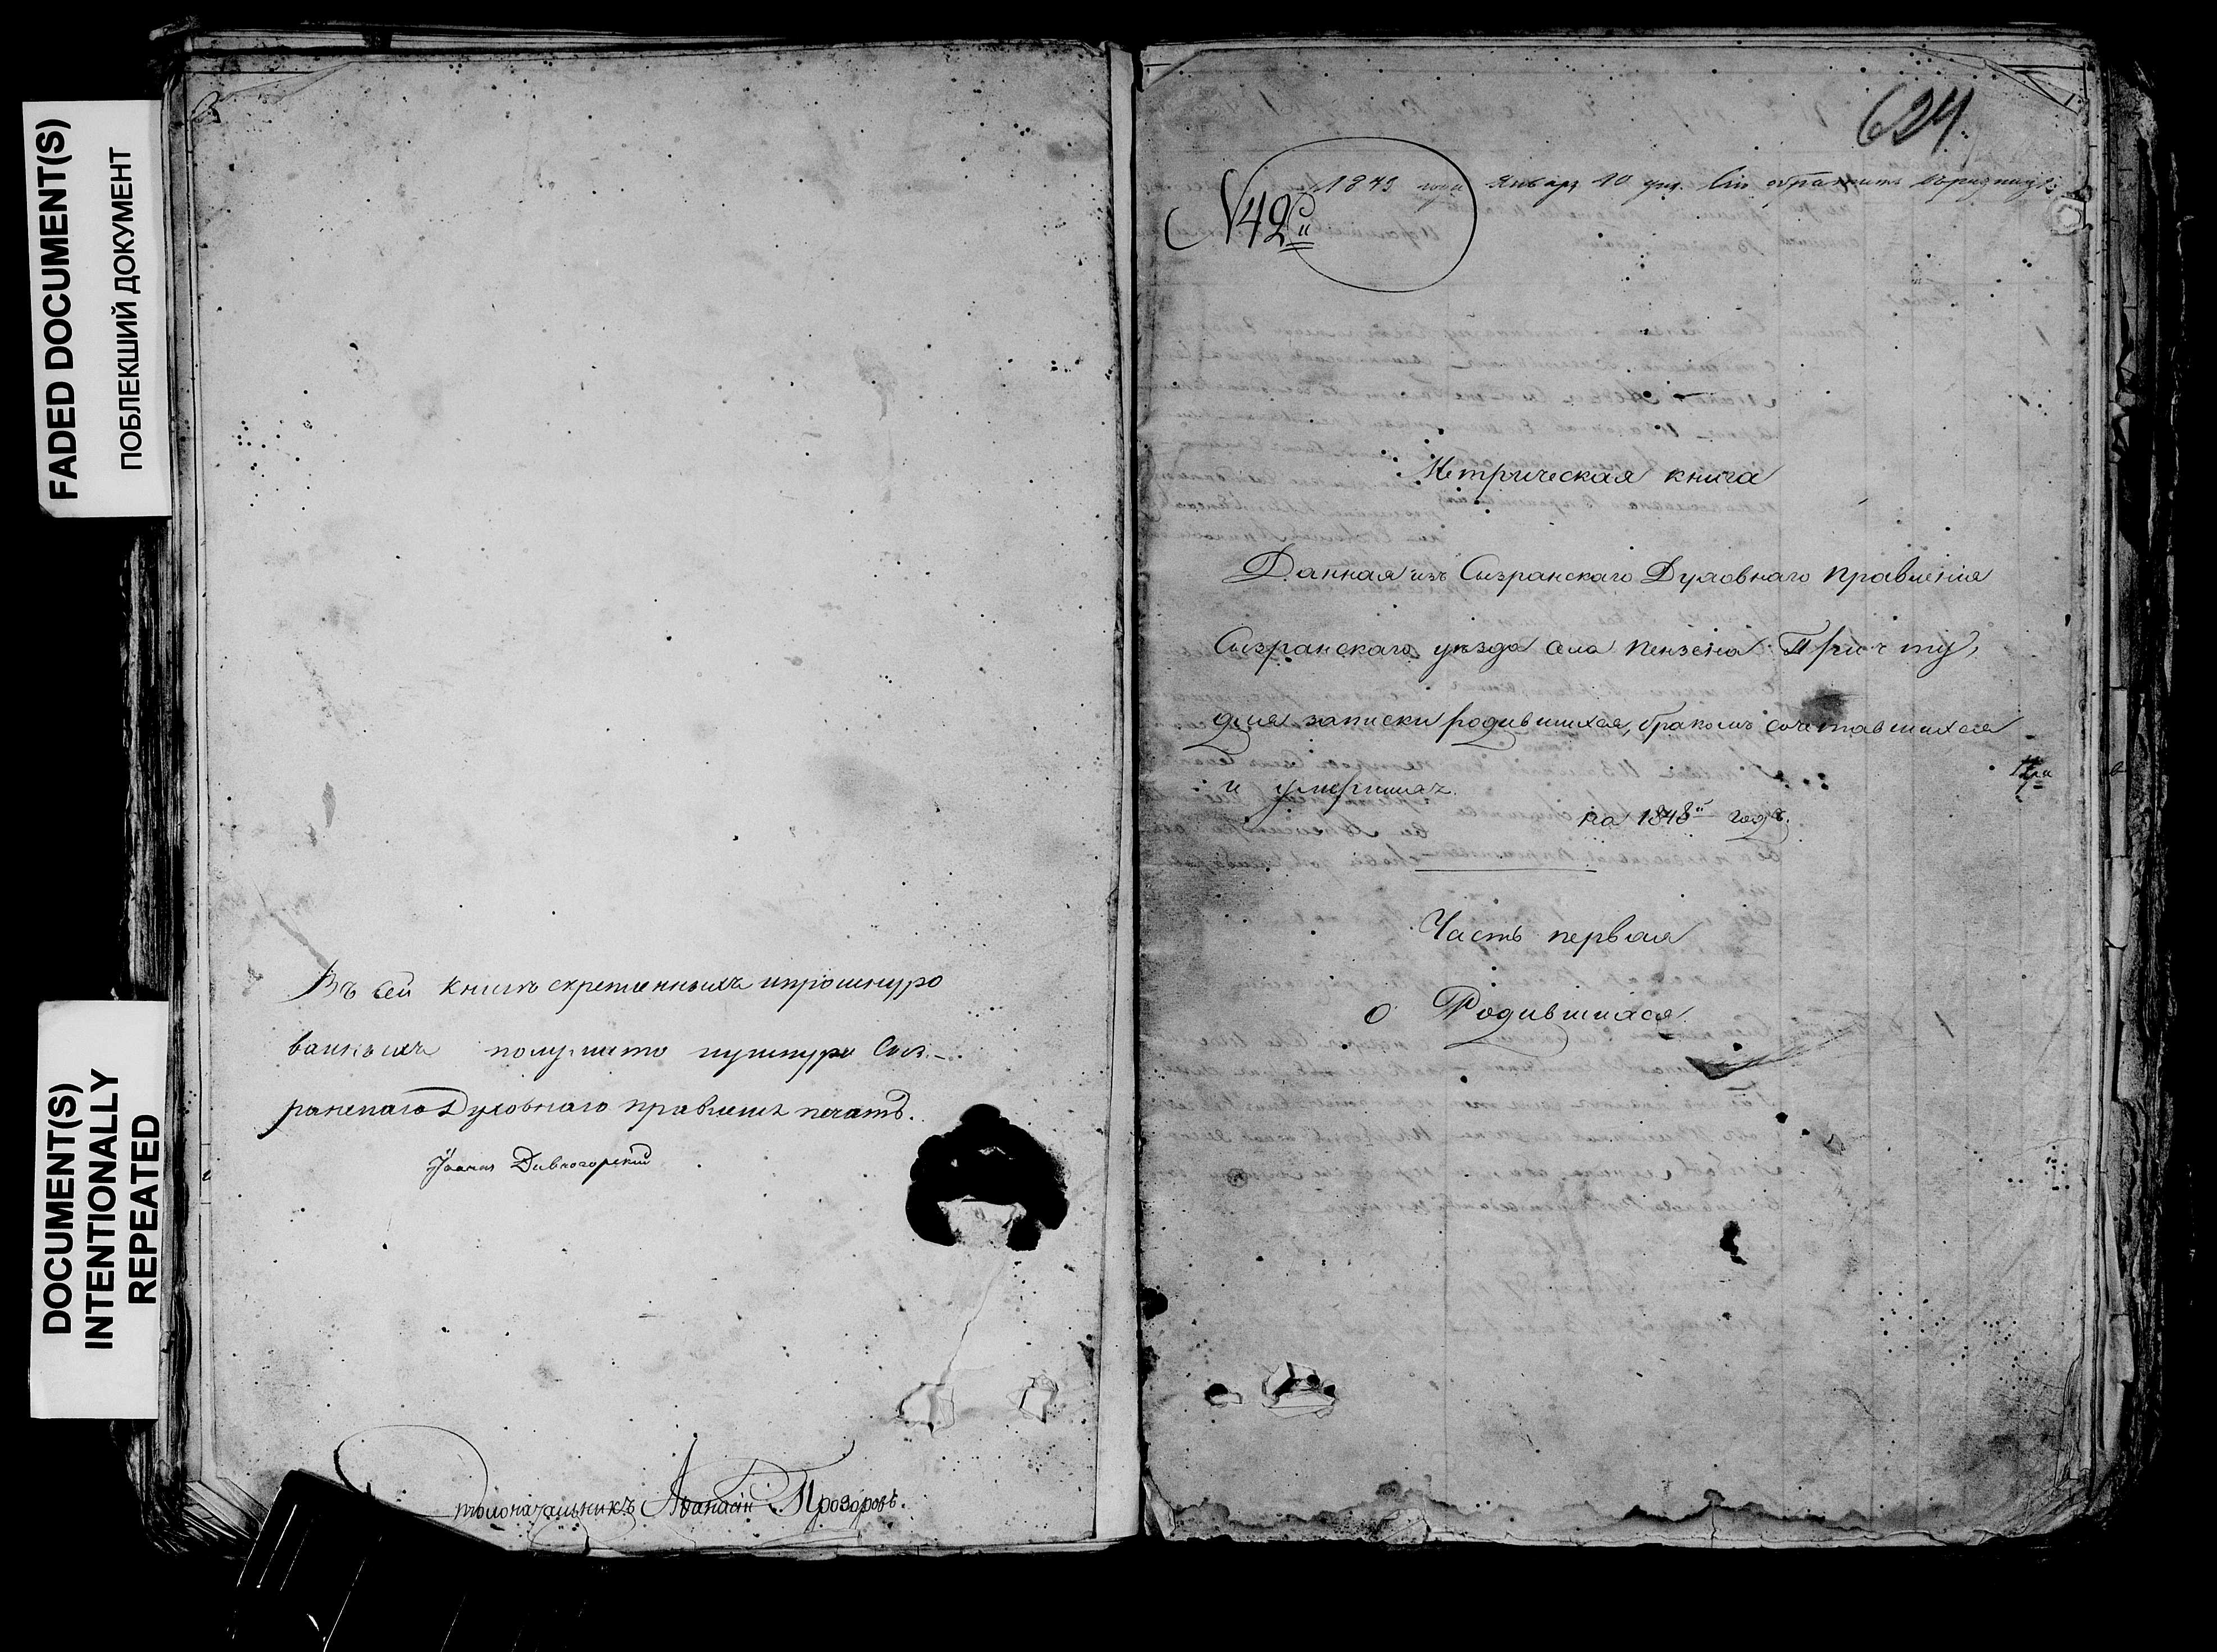 FADED DOCUMENT(S)
ПОБЛЕКШИЙ ДОКУМЕНТ
DOCUMENT(S)
INTENTIONALLY
REPEATED
Въ сей книгѣ скрепленныхъ ипрошнуро
ванныхъ полулисто Сыз-
ранскаго Духовнаго правления печать.
Іоаннъ Дивногорскій
толоначальникъ Аѳанасій Прозоровъ.
624.
1849 года Январ 10 дня.
N 42й
Метрическая книга
Данная изъ Сызранскаго Духовнаго правленія
Сызранскаго уѣзда села пензена Причту,
для записки родившихся, бракомъ сочетавшихся
и умершихъ.
на 1848й годъ.
Часть первая
о Родившихся